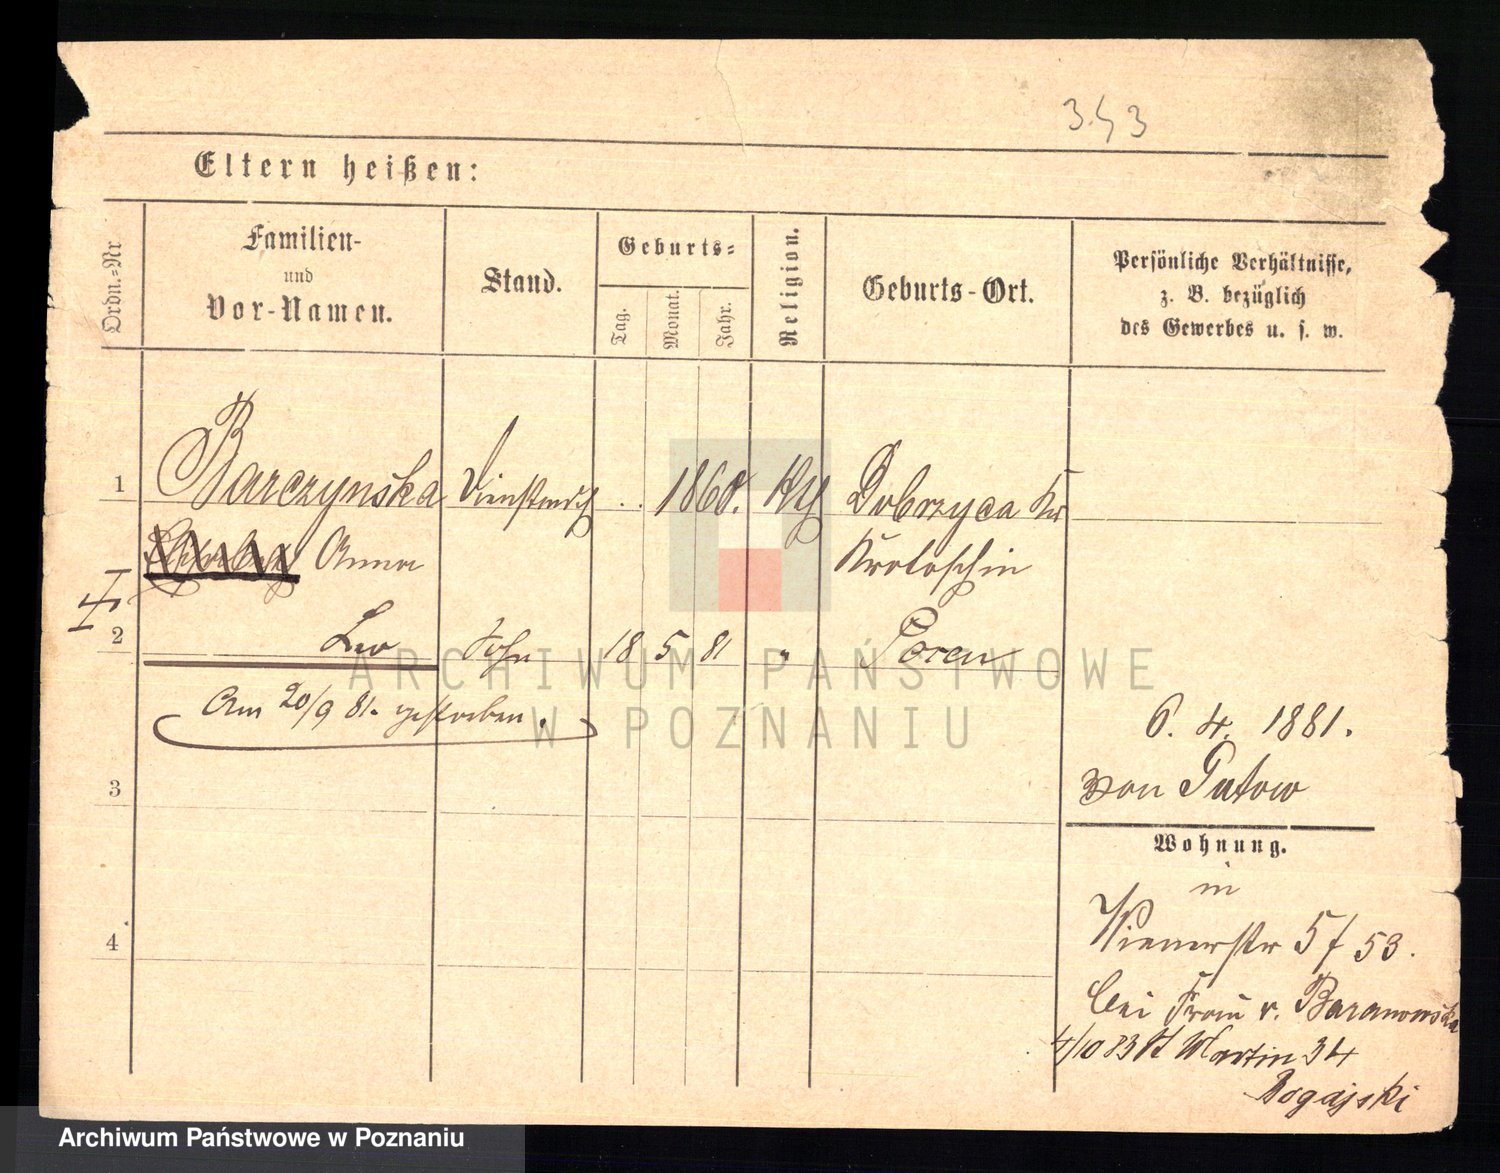 3 43
Eltern heißen:
Ordn.=Nr
Familien-
und
Vor-Namen.
Stand.
Geburts=
Tag.
Monat.
Jahr.
Religion.
Geburts-Ort.
Persönliche Verhältnisse,
z. B. bezüglich
des Gewerbes u. s. w.
1 Barczynska 1860. Kth Dobrzyca Kr
Anna Krotoschin
2 Leo Sohn 18 5 81 " Posen
Am 20/9 81. gestorben.
3
6. 4. 1881.
von
Wohnung.
in
4
Wienerstr 5/ 53.
bei Frau v. Baranowska
4/10 83 St Martin 34
Bogajski
ARCHIWUM PAŃSTWOWE
W POZNANIU
Archiwum Państwowe w Poznaniu